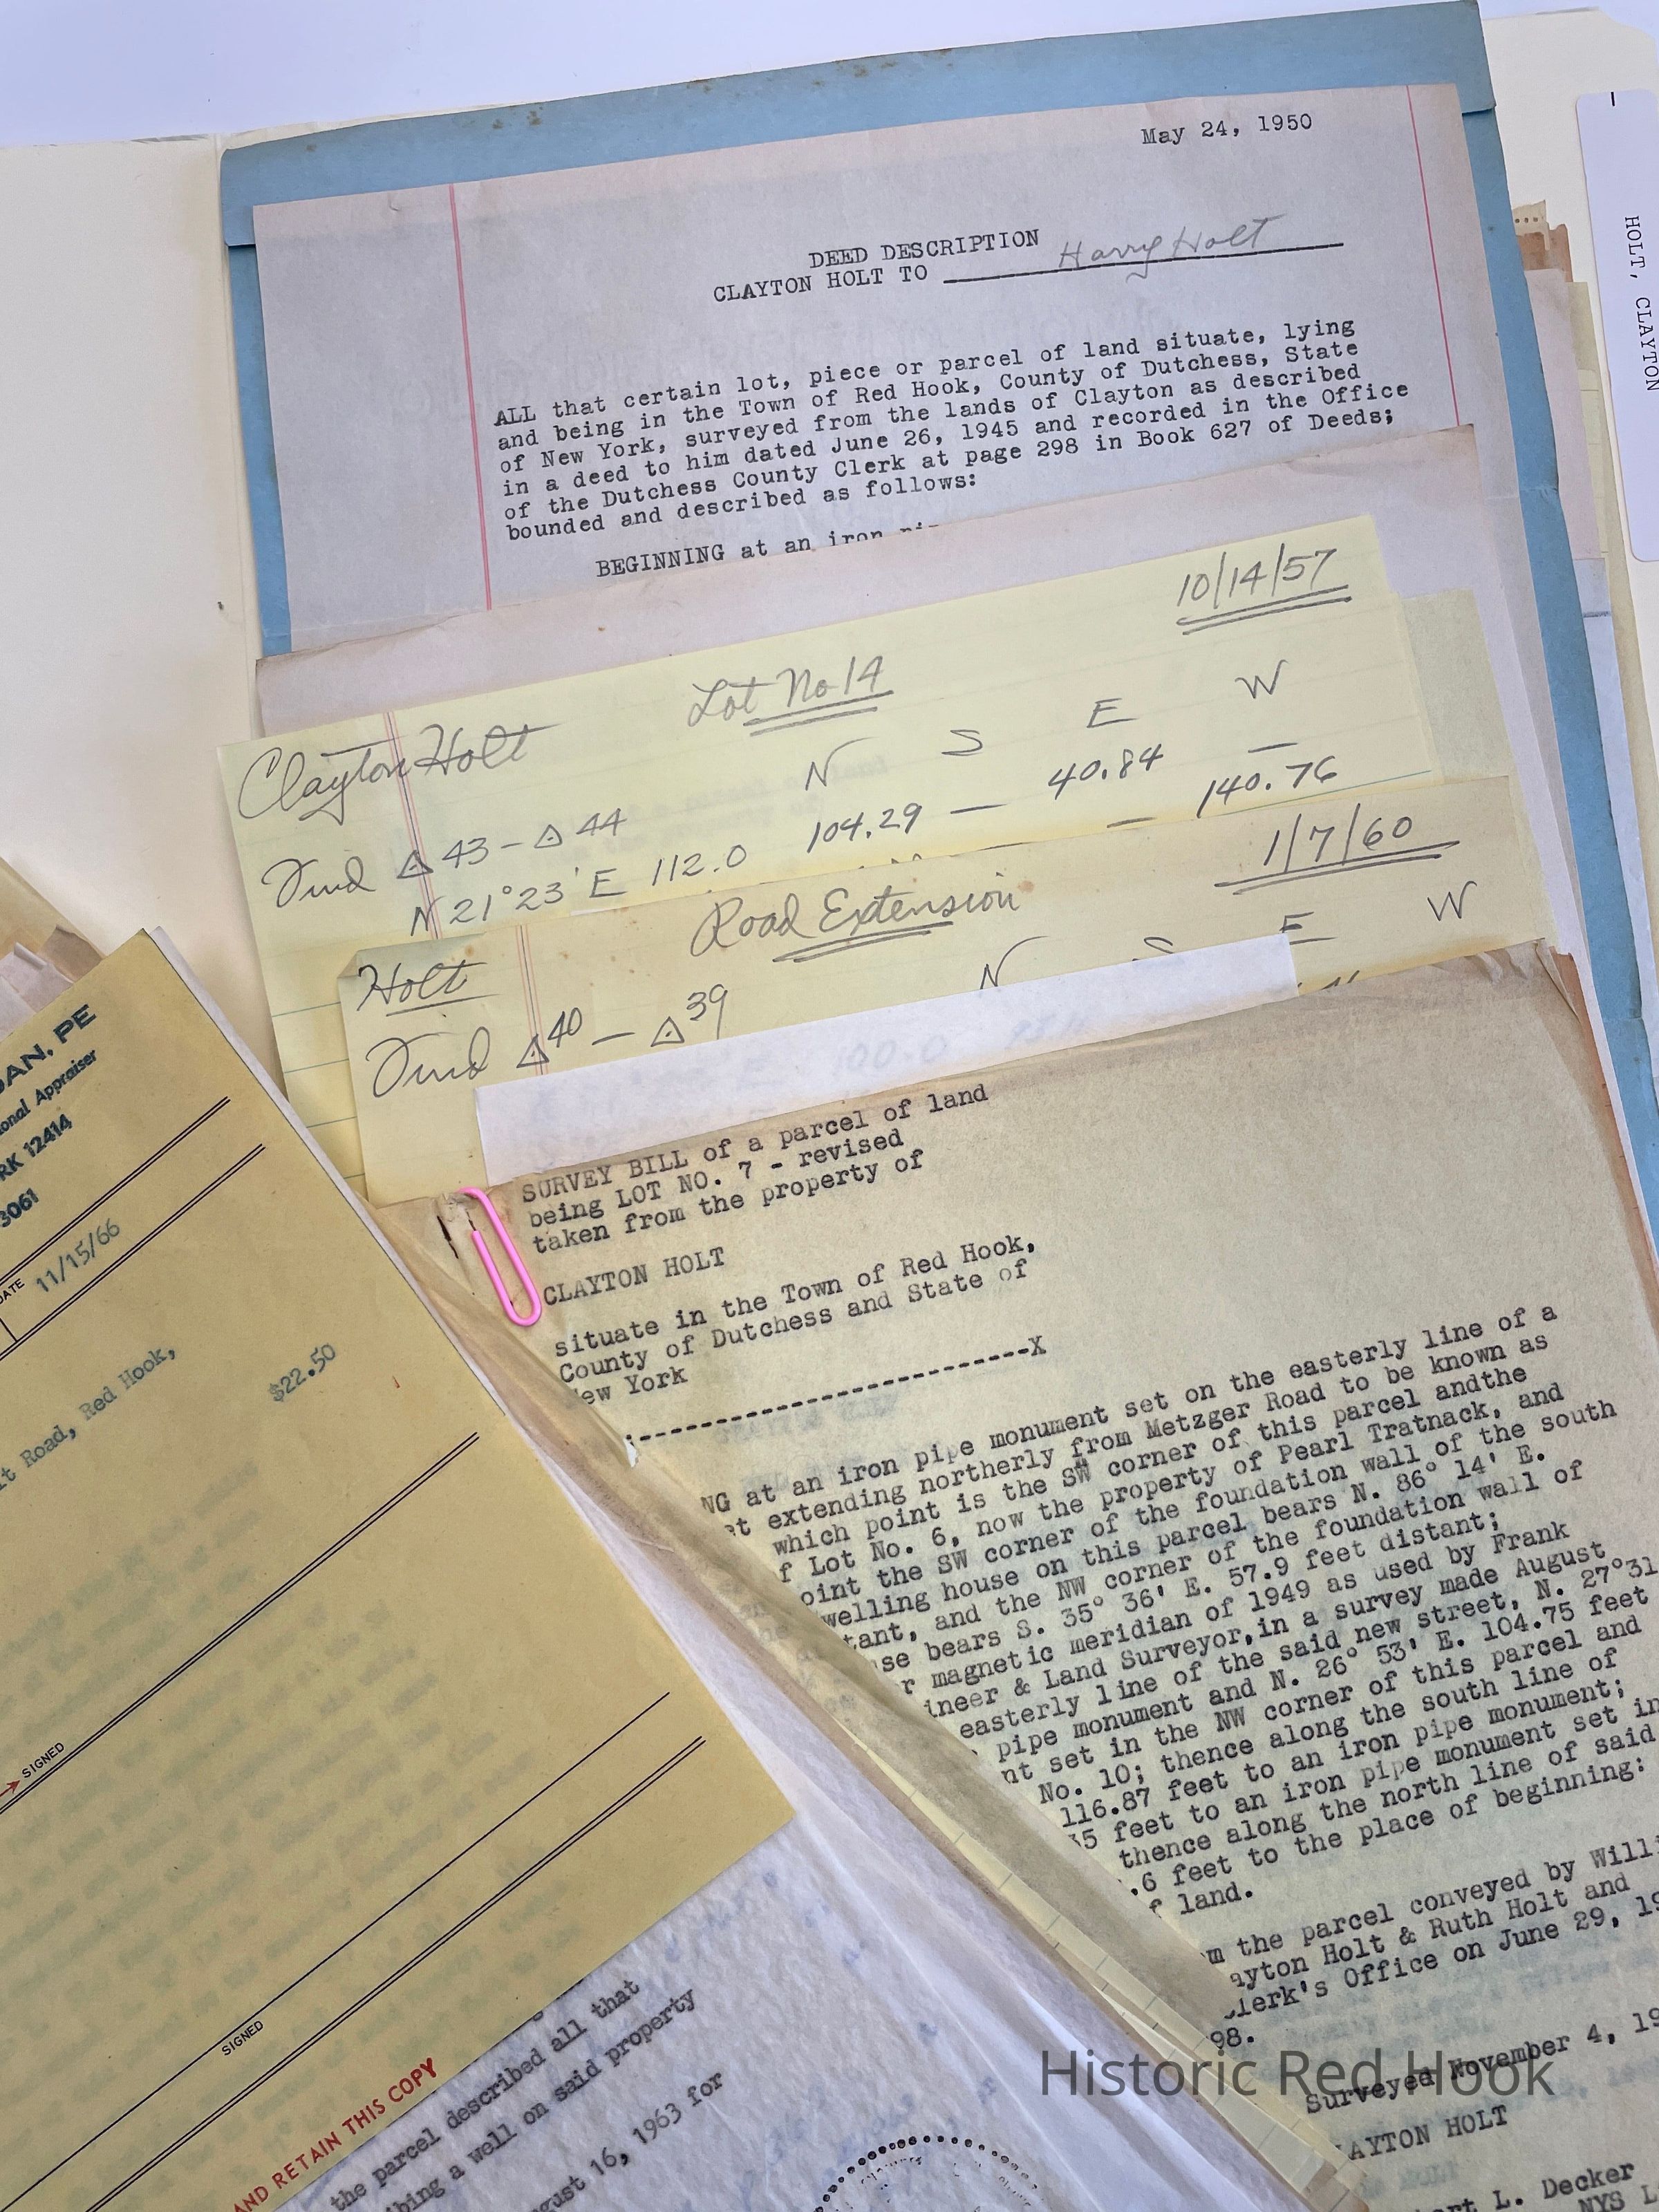 May 24, 1950
DEED DESCRIPTION
CLAYTON HOLT TO Harry Holt
ALL that certain lot, piece or parcel of land situate, lying
and being in the Town of Red Hook, County of Dutchess, State
of New York, surveyed from the lands of Clayton as described
in a deed to him dated June 26, 1945 and recorded in the Office
of the Dutchess County Clerk at page 298 in Book 627 of Deeds;
bounded and described as follows:
BEGINNING at an iron
HOLT, CLAYTON
10/14/57
Clayton Holt Lot No 14
N S E W
Find △ 43 - △ 44
N 21° 23' E 112.0 104.29 — 40.84 —
— 140.76
1/7/60
Holt Road Extension
N S E W
Find △40 - △39
SURVEY BILL of a parcel of land
being LOT NO. 7 - revised
taken from the property of
CLAYTON HOLT
situate in the Town of Red Hook,
County of Dutchess and State of
New York
------------------------------X
NG at an iron pipe monument set on the easterly line of a
et extending northerly from Metzger Road to be known as
which point is the SW corner of this parcel andthe
f Lot No. 6, now the property of Pearl Tratnack, and
oint the SW corner of the foundation wall of the south
welling house on this parcel bears N. 86° 14' E.
tant, and the NW corner of the foundation wall of
se bears S. 35° 36' E. 57.9 feet distant;
r magnetic meridian of 1949 as used by Frank
ineer & Land Surveyor, in a survey made August
easterly line of the said new street, N. 27°31
pipe monument and N. 26° 53' E. 104.75 feet
nt set in the NW corner of this parcel and
No. 10; thence along the south line of
116.87 feet to an iron pipe monument;
35 feet to an iron pipe monument set in
thence along the north line of said
.6 feet to the place of beginning:
f land.
m the parcel conveyed by Willi
ayton Holt & Ruth Holt and
lerk's Office on June 29, 19
98.
Surveyed November 4, 19
AYTON HOLT
rt L. Decker
NYS L
DAN, PE
onal Appraiser
RK 12414
3061
DATE 11/15/66
t Road, Red Hook,
$22.50
SIGNED
SIGNED
AND RETAIN THIS COPY
the parcel described all that
bing a well on said property
gust 16, 1963 for
Historic Red Hook